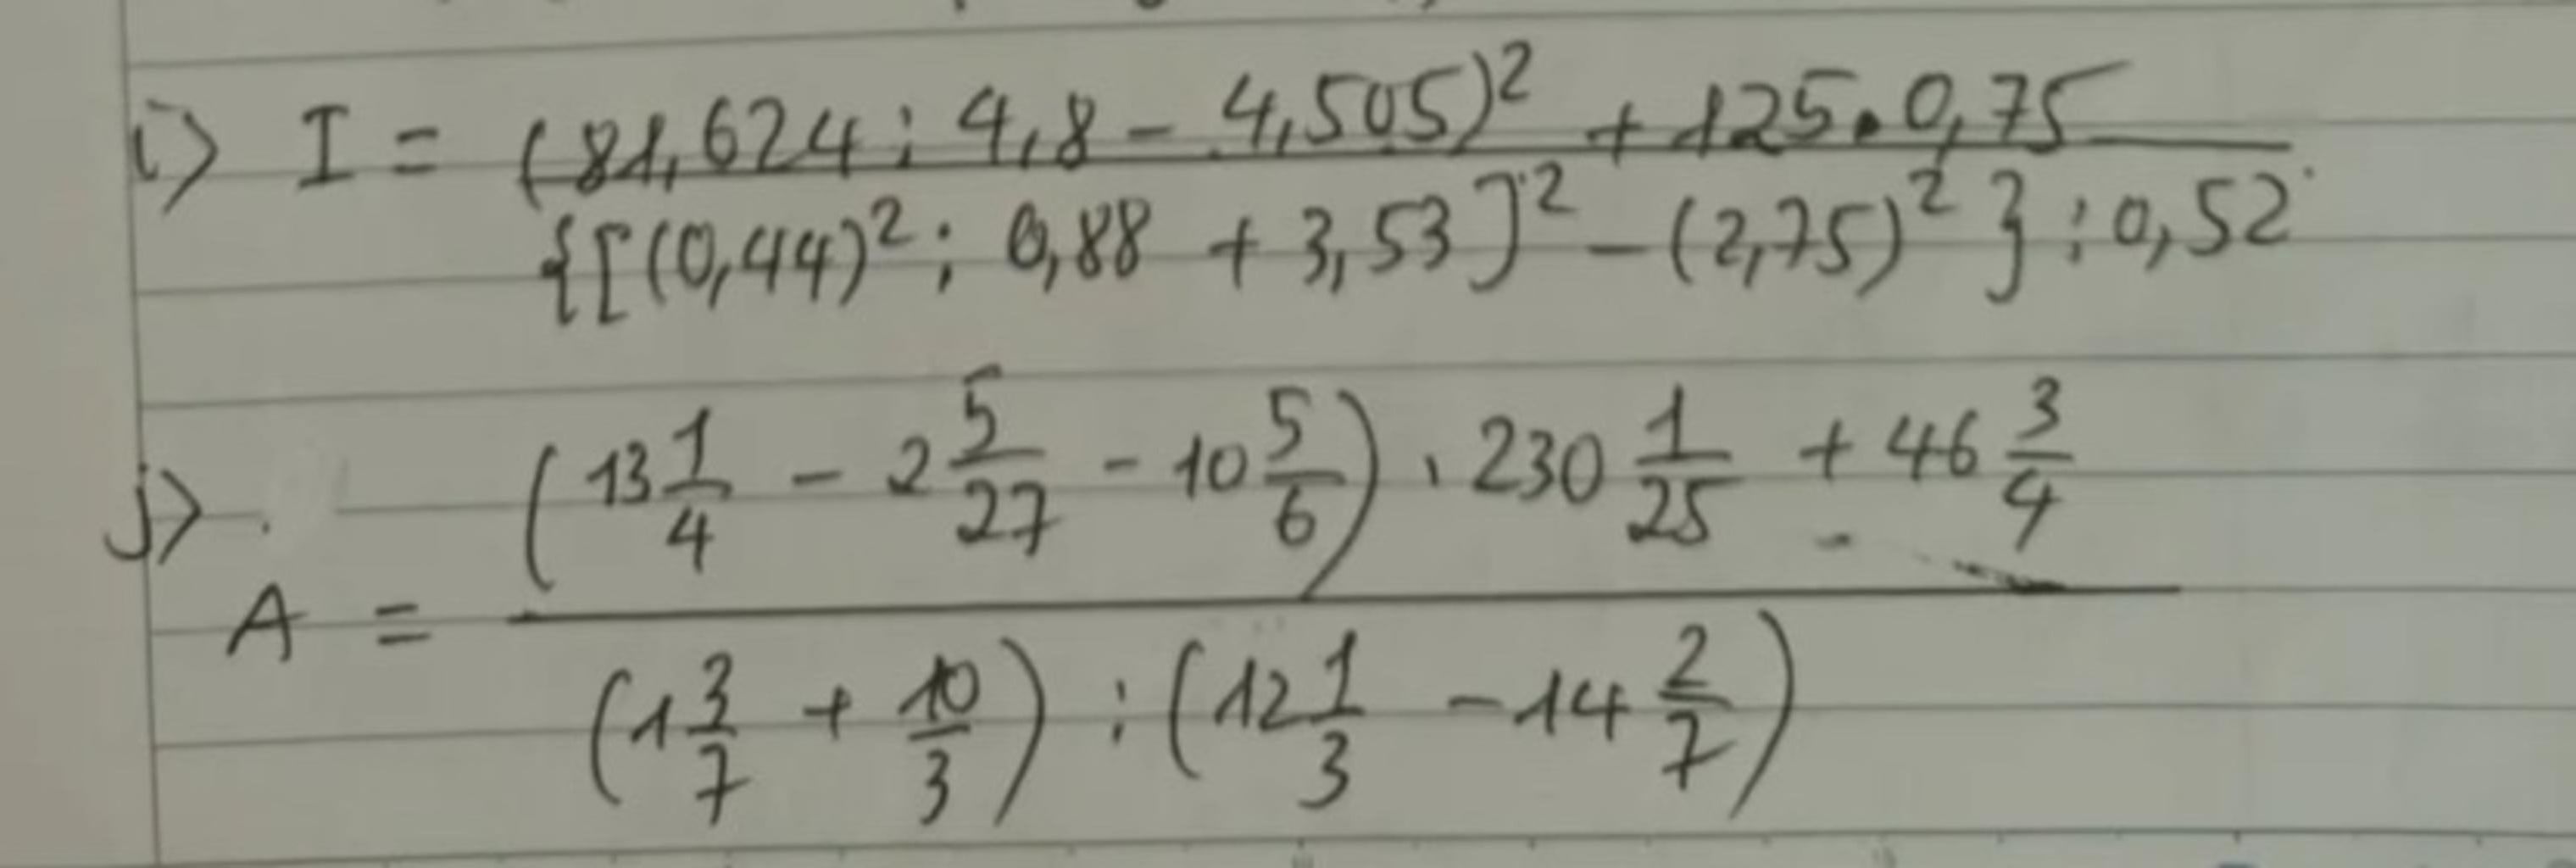 i) I = (81,624 : 4,8 - 4,505)² + 125 . 0,75
{[(0,44)² : 0,88 + 3,53]² - (2,75)²} : 0,52
j) (13 1/4 - 2 5/27 - 10 5/6) . 230 1/25 + 46 3/4
A =
(1 3/7 + 10/3) : (12 1/3 - 14 2/7)